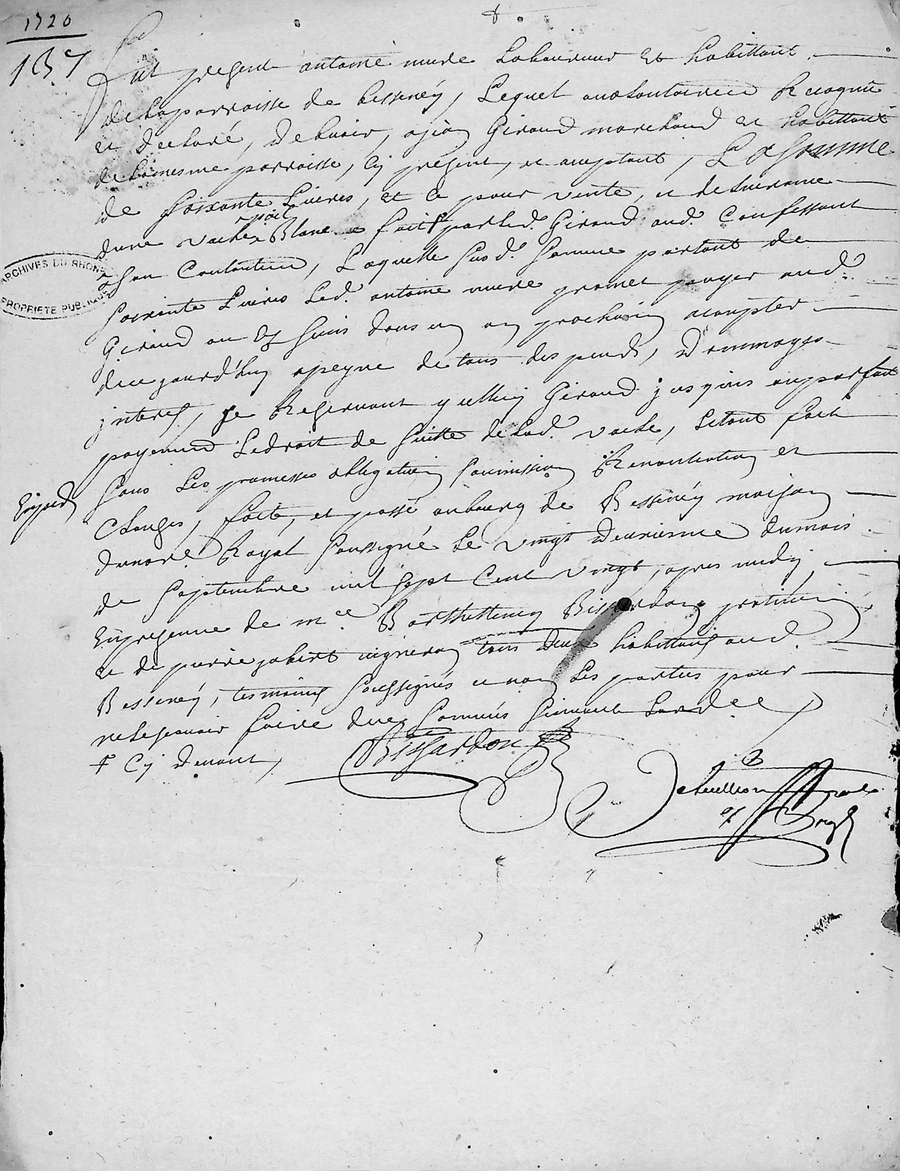 1720
187
Fut present antoine mure Laboureur et habittant
de la parroisse de bessenéy, Lequel a volontairement Recognu
et declaré, debvoir, a jean Giraud marchand et habittant
de la mesme parroisse, Cy présent, et aceptant, La Somme
de soixante Livres, et Ce pour vente, et deslivrance
poil
dune vache Blanc fait par led. Giraud aud. Confessant
a son Contantement, Laquelle susd. somme portant de
soixante Livres Led. antoine mure promet payer aud.
Giraud ou aux siens dans un an prochain a compter
de ce jourd'huy a peyne de tous despends, Dommages
interests, se Reservant yceluy Giraud jusques au parfait
payement Le droit de suitte de lad. vache, Estant fait
sous Les promesses obligation soumission Renontiation et
Clauses, fait, et passé au bourg de Bessenéy maison
du not. Royal soussigné Le vingt deuxiesme du mois
de septembre mil sept Cent vingt, apres midy,
En presence de me. Barthellemy Bissardon pratitien
et de pierre jabert vigneron tous deux habittans aud.
Bessenéy, tesmoins soussignés et non Les parties pour
ne le sçavoir faire
Cy devant,
Bissardon
ARCHIVES DU RHONE
PROPRIETE PUBLIQUE